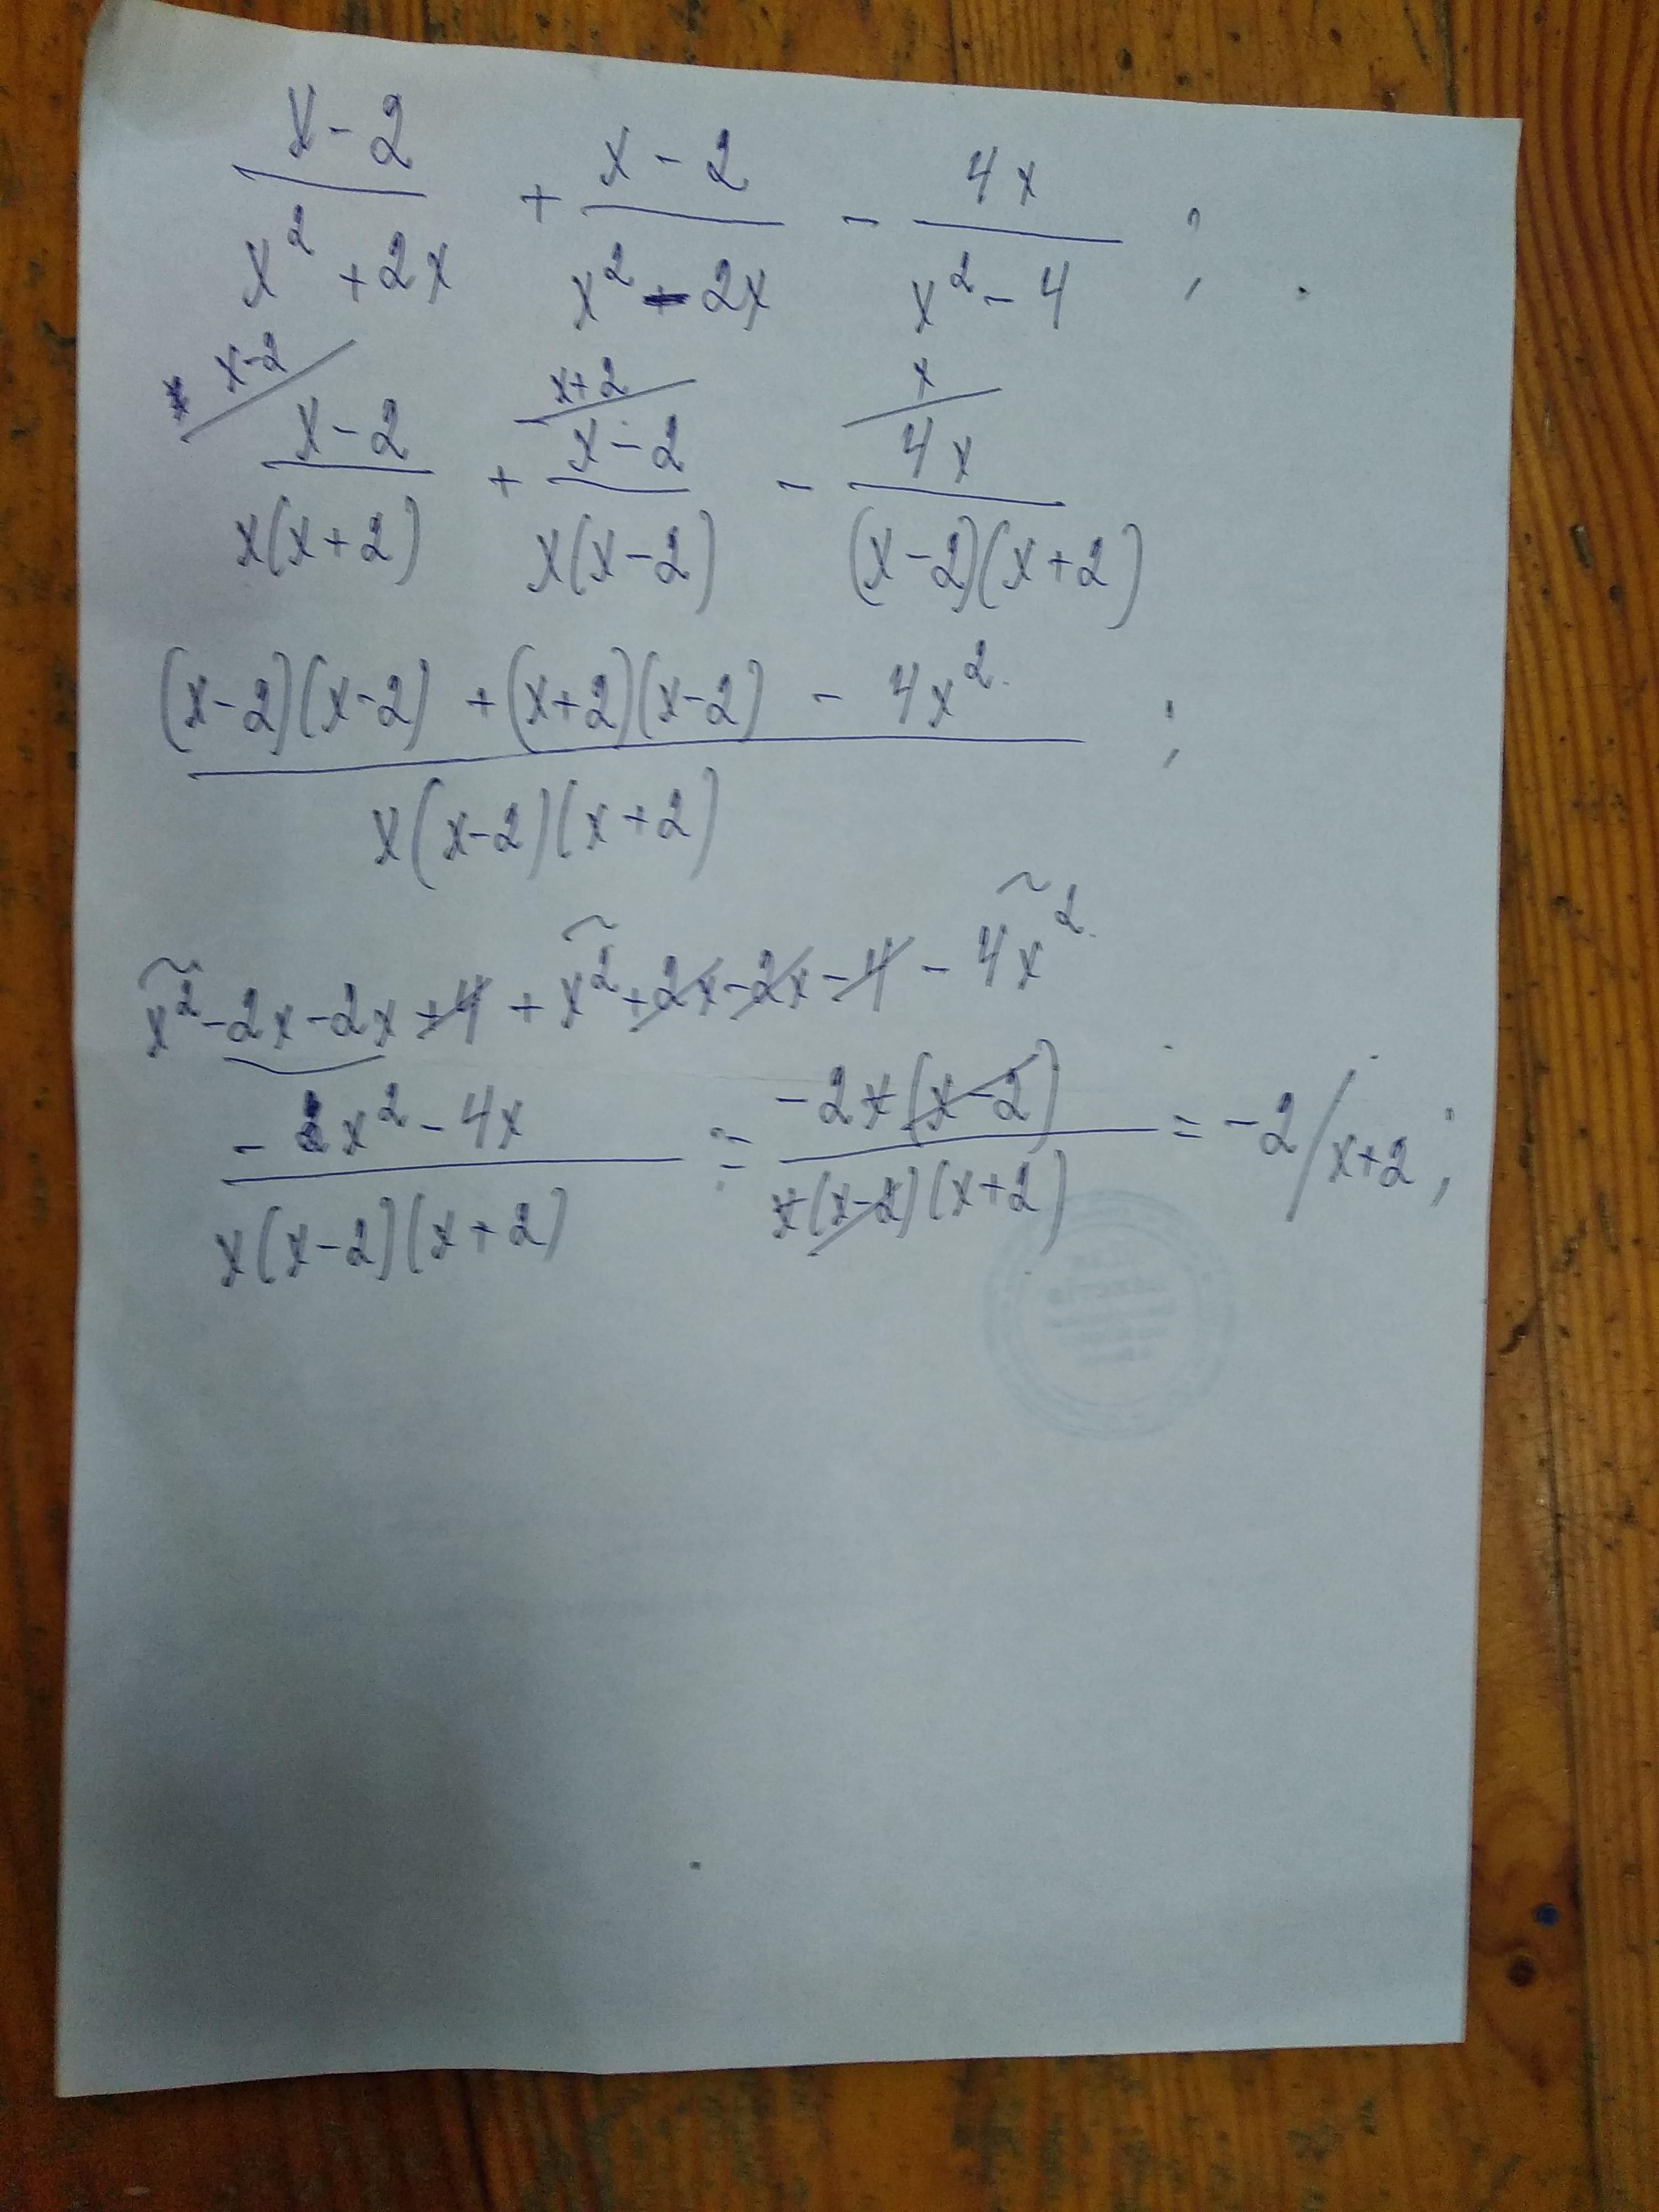 x-2 / x² + 2x + x-2 / x² - 2x - 4x / x² - 4 ;
x-2 x+2 x
x-2 / x(x+2) + x-2 / x(x-2) - 4x / (x-2)(x+2)
(x-2)(x-2) + (x+2)(x-2) - 4x² / x(x-2)(x+2) ;
x² - 2x - 2x + 4 + x² + 2x - 2x - 4 - 4x²
-2x² - 4x / x(x-2)(x+2) = -2x(x-2) / x(x-2)(x+2) = -2/x+2 ;